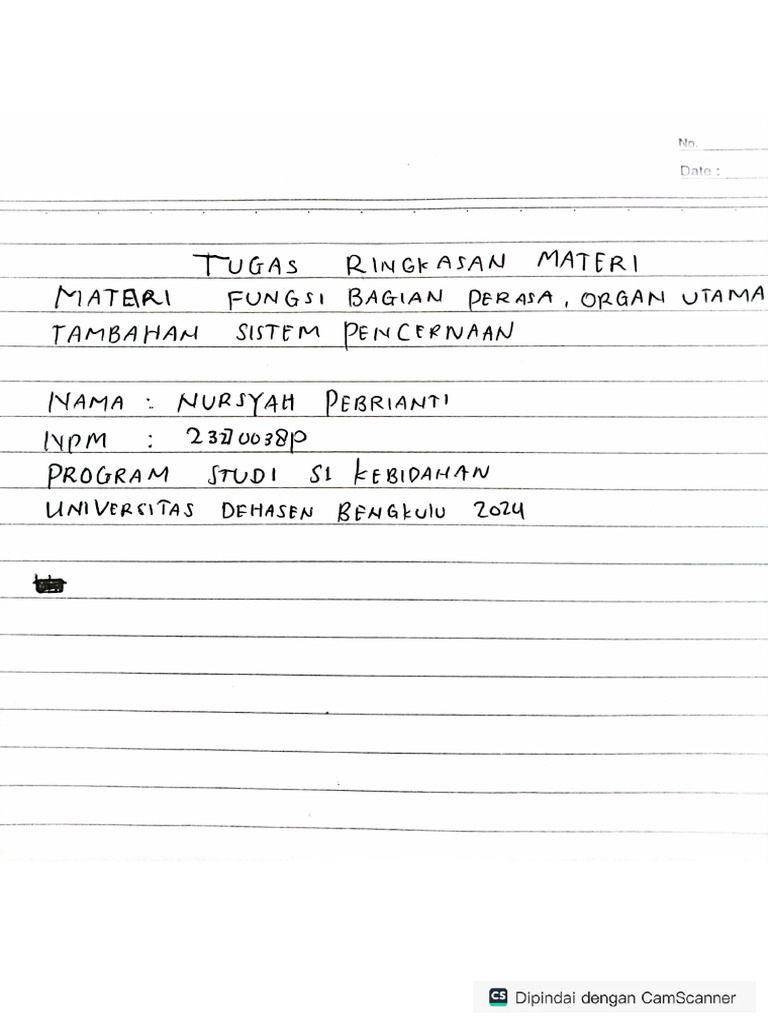 No.
Date :
TUGAS RINGKASAN MATERI
MATERI FUNGSI BAGIAN PERASA, ORGAN UTAMA
TAMBAHAN SISTEM PENCERNAAN
NAMA : NURSYAH PEBRIANTI
NPM :
PROGRAM STUDI S1 KEBIDAHAN
UNIVERSITAS DEHASEN BENGKULU 2024
CS Dipindai dengan CamScanner